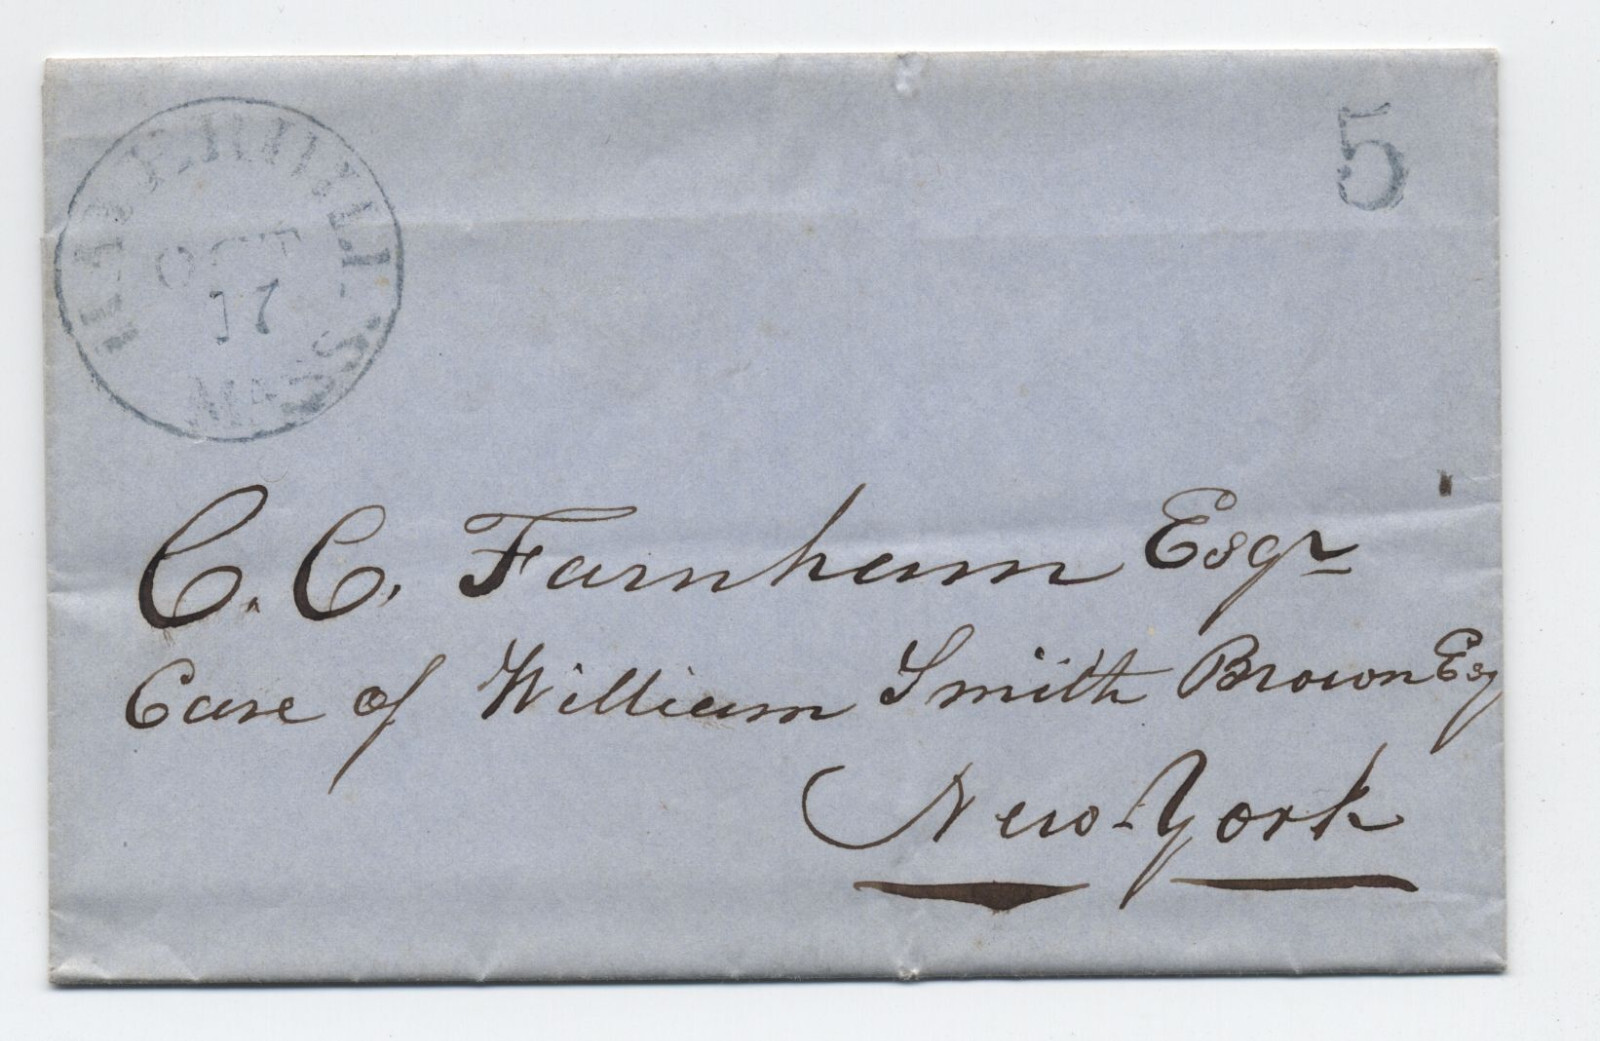 HAVERHILL
OCT
17
MASS.
5
C. C. Farnham Esqr
Care of William Smith Brown Esq
New-York